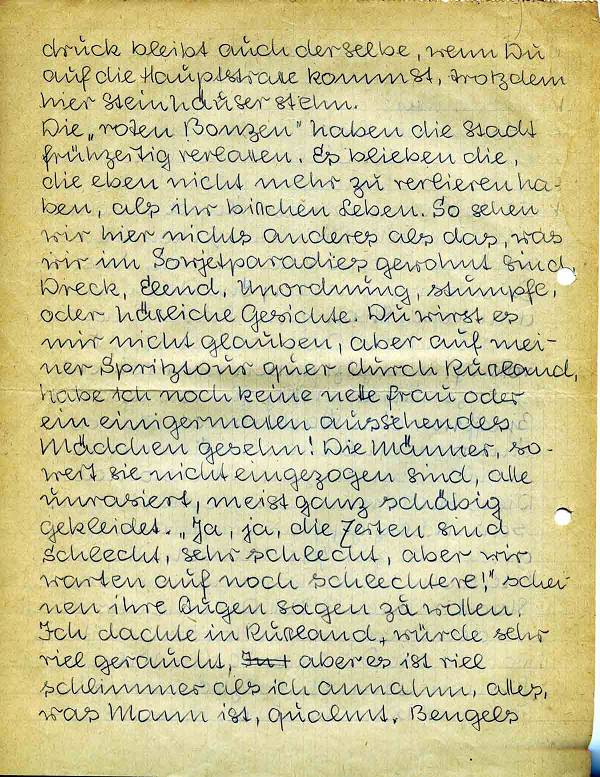 druck bleibt auch derselbe, wenn Du
auf die Hauptstraße kommst, trotzdem
hier Steinhäuser stehn.
Die „roten Bonzen" haben die Stadt
frühzeitig verlaßen. Es blieben die,
die eben nicht mehr zu verlieren ha-
ben, als ihr bißchen Leben. So sehen
wir hier nichts anderes als das, was
wir im Sowjetparadies gewohnt sind,
Dreck, Elend, Unordnung, stumpfe,
oder häßliche Gesichte. Du wirst es
mir nicht glauben, aber auf mei-
ner Spritztour quer durch Rußland,
habe ich noch keine nette Frau oder
ein einigermaßen aussehendes
Mädchen gesehn! Die Männer, so-
weit sie nicht eingezogen sind, alle
unrasiert, meist ganz schäbig
gekleidet. „Ja, ja, die Zeiten sind
schlecht, sehr schlecht, aber wir
warten auf noch schlechtere!" schei-
nen ihre Augen sagen zu wollen.
Ich dachte in Rußland, würde sehr
viel geraucht, aber es ist viel
schlimmer als ich annahm, alles,
was Mann ist, qualmt. Bengels